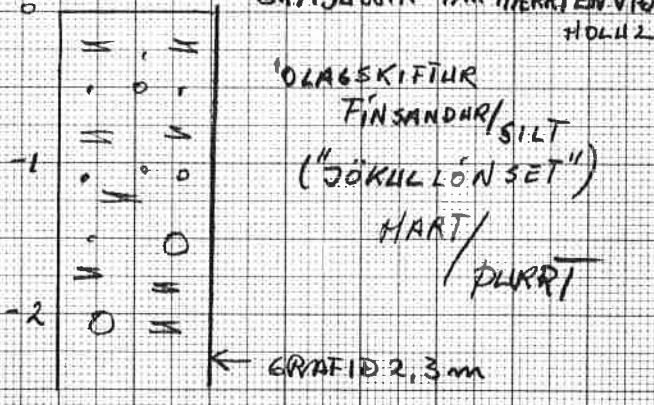 HOLU 2
0
ÓLAGSKIFTUR
FÍNSANDUR/SILT
-1
("JÖKULLÓNSET")
HART/ÞURRT
-2
← GRAFIÐ 2,3 m